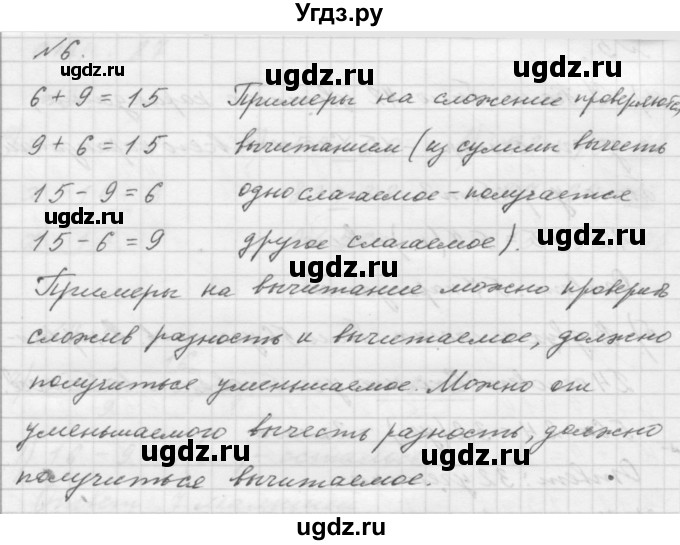 Угдз.ру
№6.
6 + 9 = 15 Примеры на сложение проверяются
9 + 6 = 15 вычитанием (из суммы вычесть
15 - 9 = 6 одно слагаемое - получается
15 - 6 = 9 другое слагаемое).
Примеры на вычитание можно проверить
сложив разность и вычитаемое, должно
получиться уменьшаемое. Можно от
уменьшаемого вычесть разность, должно
получиться вычитаемое.
ugdz.ru
ugdz.ru
ugdz.ru
ugdz.ru
ugdz.ru
ugdz.ru
ugdz.ru
ugdz.ru
ugdz.ru
ugdz.ru
ugdz.ru
ugdz.ru
ugdz.ru